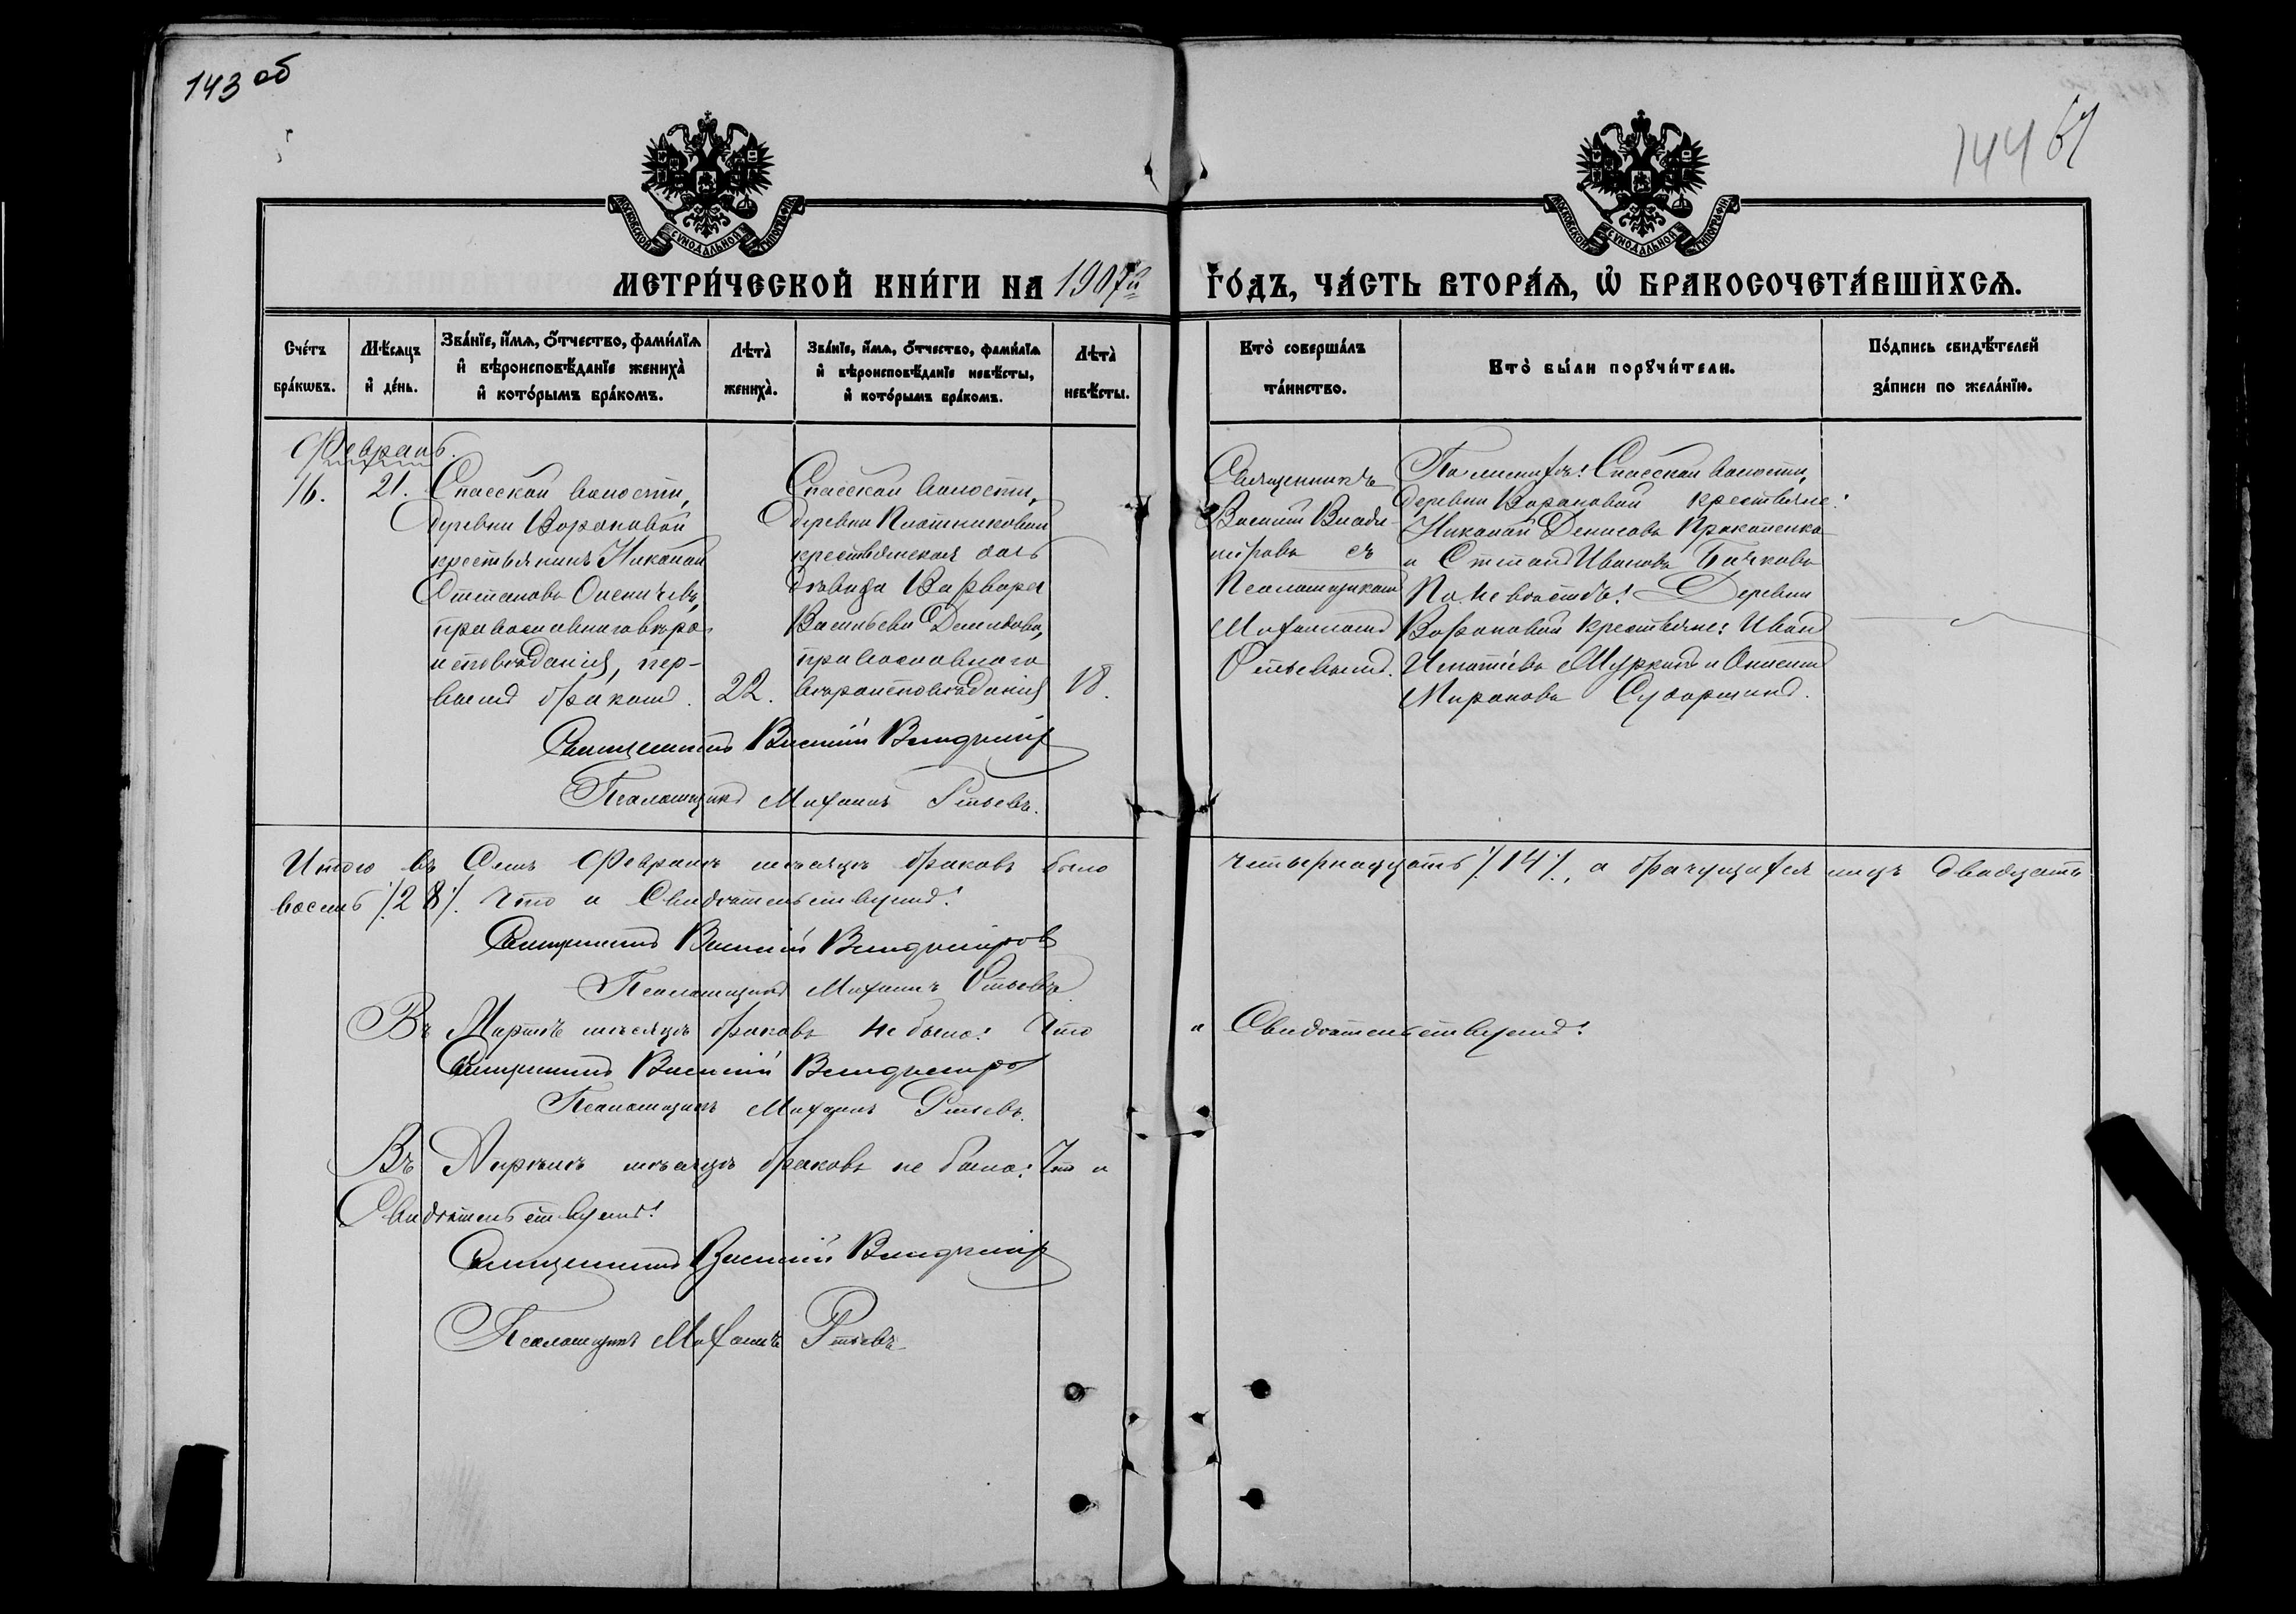 143 об
144 67
МОСКОВСКОЙ СУНОДАЛЬНОЙ ТИПОГРАФІИ
МОСКОВСКОЙ СУНОДАЛЬНОЙ ТИПОГРАФІИ
МЕТРИ́ЧЕСКОЙ КНИ́ГИ НА 1907й ГО́ДЪ, ЧА́СТЬ ВТОРА́Ѧ, Ѡ БРАКОСОЧЕТА́ВШИХСѦ.
Сче́тъ бра́кѡвъ.
Мѣ́сяцъ и де́нь.
Зва́нїе, и́мѧ, о́тчество, фами́лїѧ и вѣроисповѣ́данїе жениха̀ и кото́рымъ бра́комъ.
Лѣта̀ жениха̀.
Зва́нїе, и́мѧ, о́тчество, фами́лїѧ и вѣроисповѣ́данїе невѣ́сты, и кото́рымъ бра́комъ.
Лѣта̀ невѣ́сты.
Кто̀ соверша́лъ та́инство.
Кто̀ бы́ли порꙋчи́тели.
По́дпись свидѣ́телей за́писи по жела́нїю.
Февраль.
16.
21.
Спасской волости,
деревни Вороновой
крестьянинъ Николай
Стетановъ
православнаго вѣро
исповѣданія, пер-
вымъ бракомъ.
22.
Спасской волости,
деревни Плотниковой
крестьянская дочь
дѣвица Варвара
Васильева Демидова,
православнаго
вѣроисповѣданія
18.
Священникъ
Василій Влади-
міровъ съ
Псаломщикомъ
Михаиломъ
По женихѣ: Спасской волости,
деревни Вороновой крестьяне:
Николай Денисовъ Прокопенко
и Степанъ Ивановъ Бычковъ
По невѣстѣ: Деревни
Вороновой крестьяне: Иванъ
Игнатіевъ Муркинъ и
Мироновъ
Священникъ Василій Владимір
Псаломщикъ Михаилъ
Итого въ Семъ Февралѣ мѣсяцѣ браковъ было четырнадцать /14/, а брачущихся лицъ двадцать
восемь /28/. Что и Свидѣтельствуемъ:
Священникъ Василій Владиміровъ
Псаломщикъ Михаилъ
Въ Мартѣ мѣсяцѣ браковъ не было: Что и Свидѣтельствуемъ:
Священникъ Василій Владиміров
Псаломщикъ Михаилъ
Въ Апрѣлѣ мѣсяцѣ браковъ не было: Что и
Свидѣтельствуемъ:
Священникъ Василій Владимір
Псаломщикъ Михаилъ